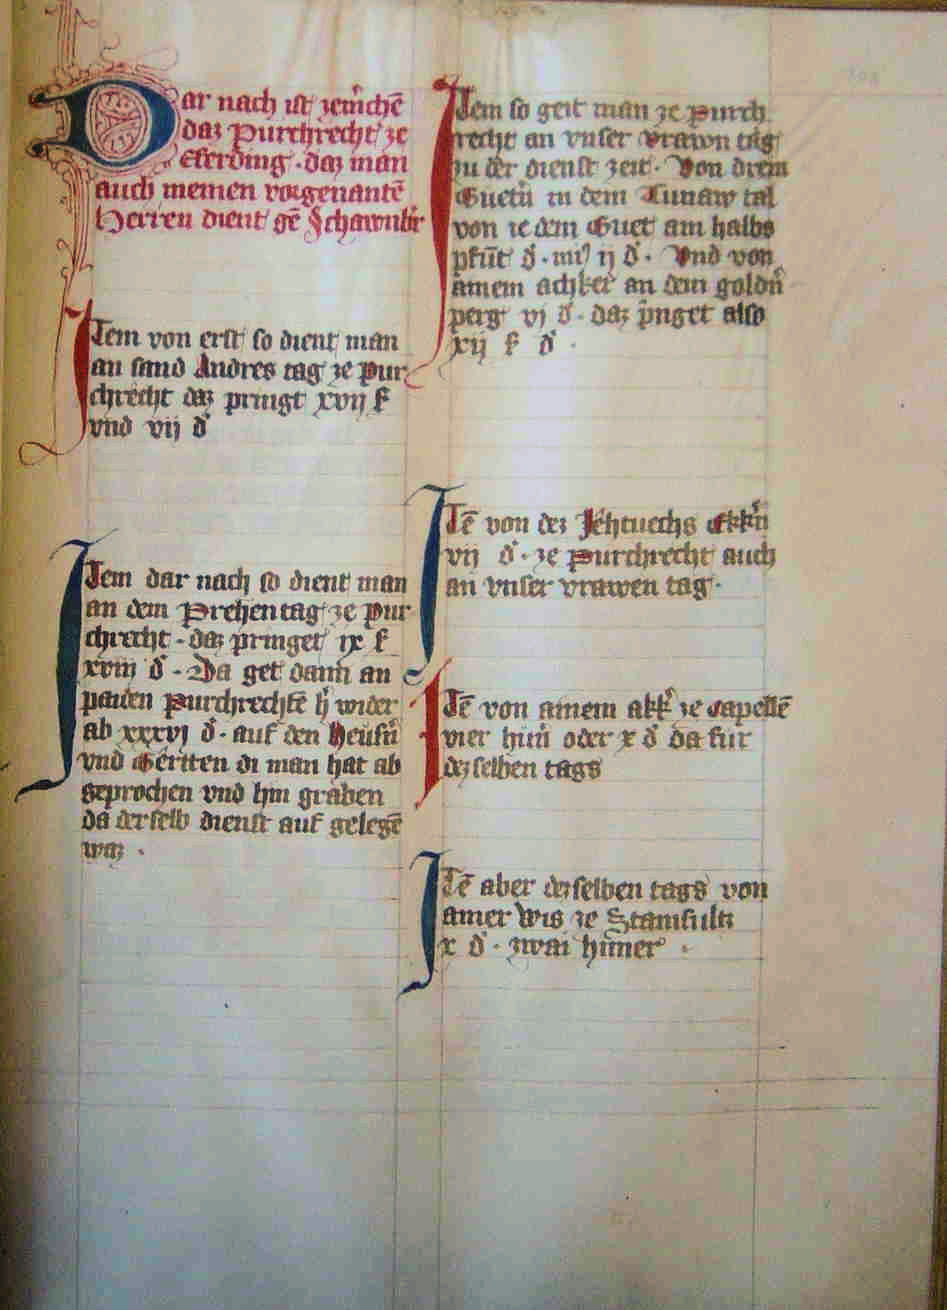 Dar nach ist zem̄chē
daz Purchrecht ze
Eferding · daz man
auch meinen vorgenantē
Herren dient gē Schawnbr̄
Item von erst so dient man
an sand Andres tag ze Pur
chrecht daz pringt xvij ß
vnd vij d̄
Item dar nach so dient man
an dem Prehentag ze Pur
chrecht · daz pringet ix ß
xviij d̄ · Da get dann an
paiden Purchrechtē h̄ wider
ab xxxvj d̄ · auf den Heusn̄
vnd Gertten di man hat ab
geprochen vnd hin graben
da derselb dienst auf gelegē
waz ·
Item so geit man ze Purch
recht an vnser vrawn tag
zu der dienst zeit · Von drein
Guetn̄ in dem Tunaw tal
von ie dem Guet am halbs
pfūt d̄ · mī ij d̄ · Vnd von
ainem achker an dem goldn̄
perg vj d̄ · daz p̄nget also
xij ß d̄ ·
Itē von dez Ekkn̄
vij d̄ · ze Purchrecht auch
an vnser vrawen tag ·
Itē von ainem akk̄ ze Capellē
vier hūn̄ oder x d̄ da fur
dez selben tags
Itē aber dez selben tags von
ainer Wis ze
x d̄ · zwai hūner ·